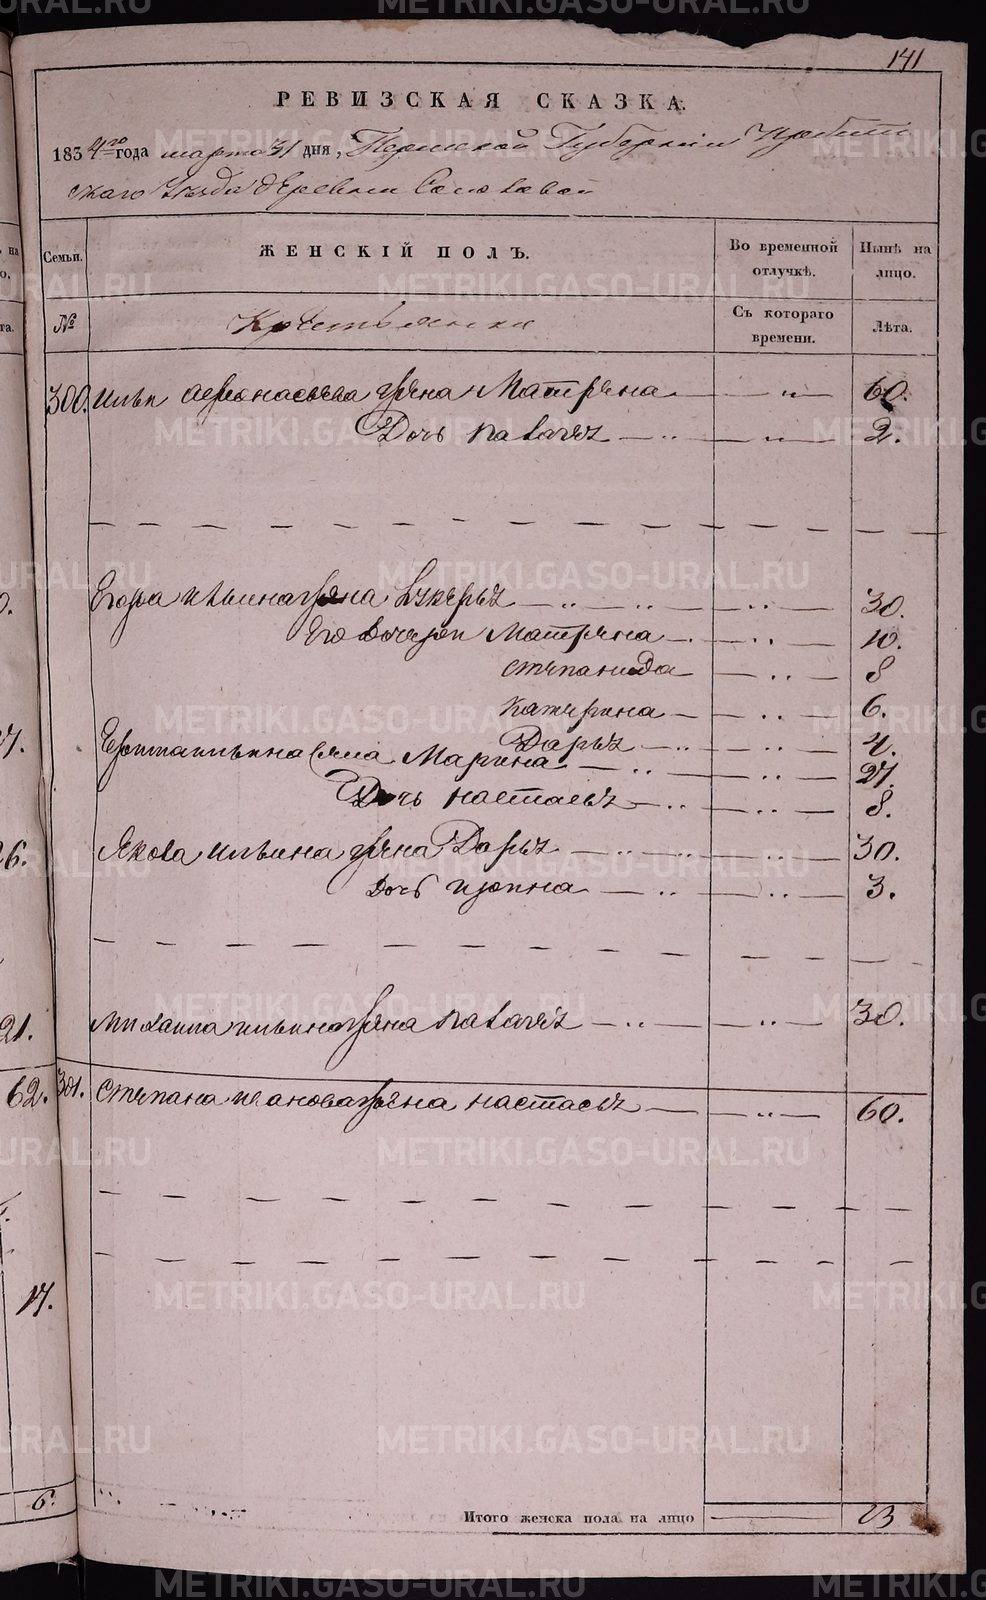 141
РЕВИЗСКАЯ СКАЗКА.
1834го года марта 31 дня, Пермской Губернии Ирбит
скаго Уезда деревни
Семьи.
ЖЕНСКІЙ ПОЛЪ.
Во временной отлучкѣ.
Нынѣ на лицо.
№
Крестьянки
Съ котораго времени.
Лѣта.
300. Ильи жена Матрена — „ — 60.
Дочь — „ — 2.
Егора Ильина жена — „ — 30.
Его дочери Матрена — „ — 10.
Степанида — „ — 8
Катерина — „ — 6.
Дарья — „ — 4.
Ильина жена Марина — „ — 27.
Дочь Настасья — „ — 8.
Якова Ильина жена Дарья — „ — 30.
Дочь — „ — 3.
Михаила Ильина жена — „ — 30.
301. Степана Иванова жена Настасья — „ — 60.
Итого женска пола на лицо — 13
26.
21.
62.
17.
6.
METRIKI.GASO-URAL.RU